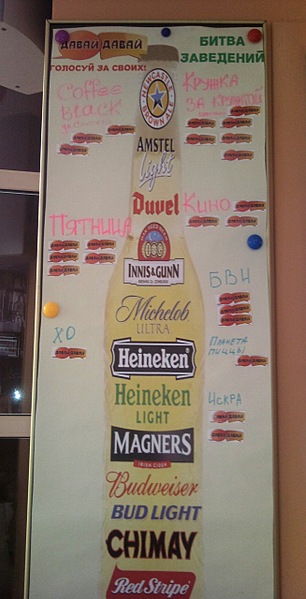 ДАВАЙ ДАВАЙ
ГОЛОСУЙ ЗА СВОИХ!
БИТВА
ЗАВЕДЕНИЙ
Coffee
BLACK
КРУЖКА
ЗА КРУЖКОЙ
NEWCASTLE
BROWN ALE
AMSTEL
light
Duvel
КИНО
ПЯТНИЦА
INNIS&GUNN
Michelob
ULTRA
БВЧ
ХО
Heineken
ПЛАНЕТА
ПИЦЦЫ
Heineken
LIGHT
ИСКРА
MAGNERS
IRISH CIDER
Budweiser
BUD LIGHT
CHIMAY
Red Stripe